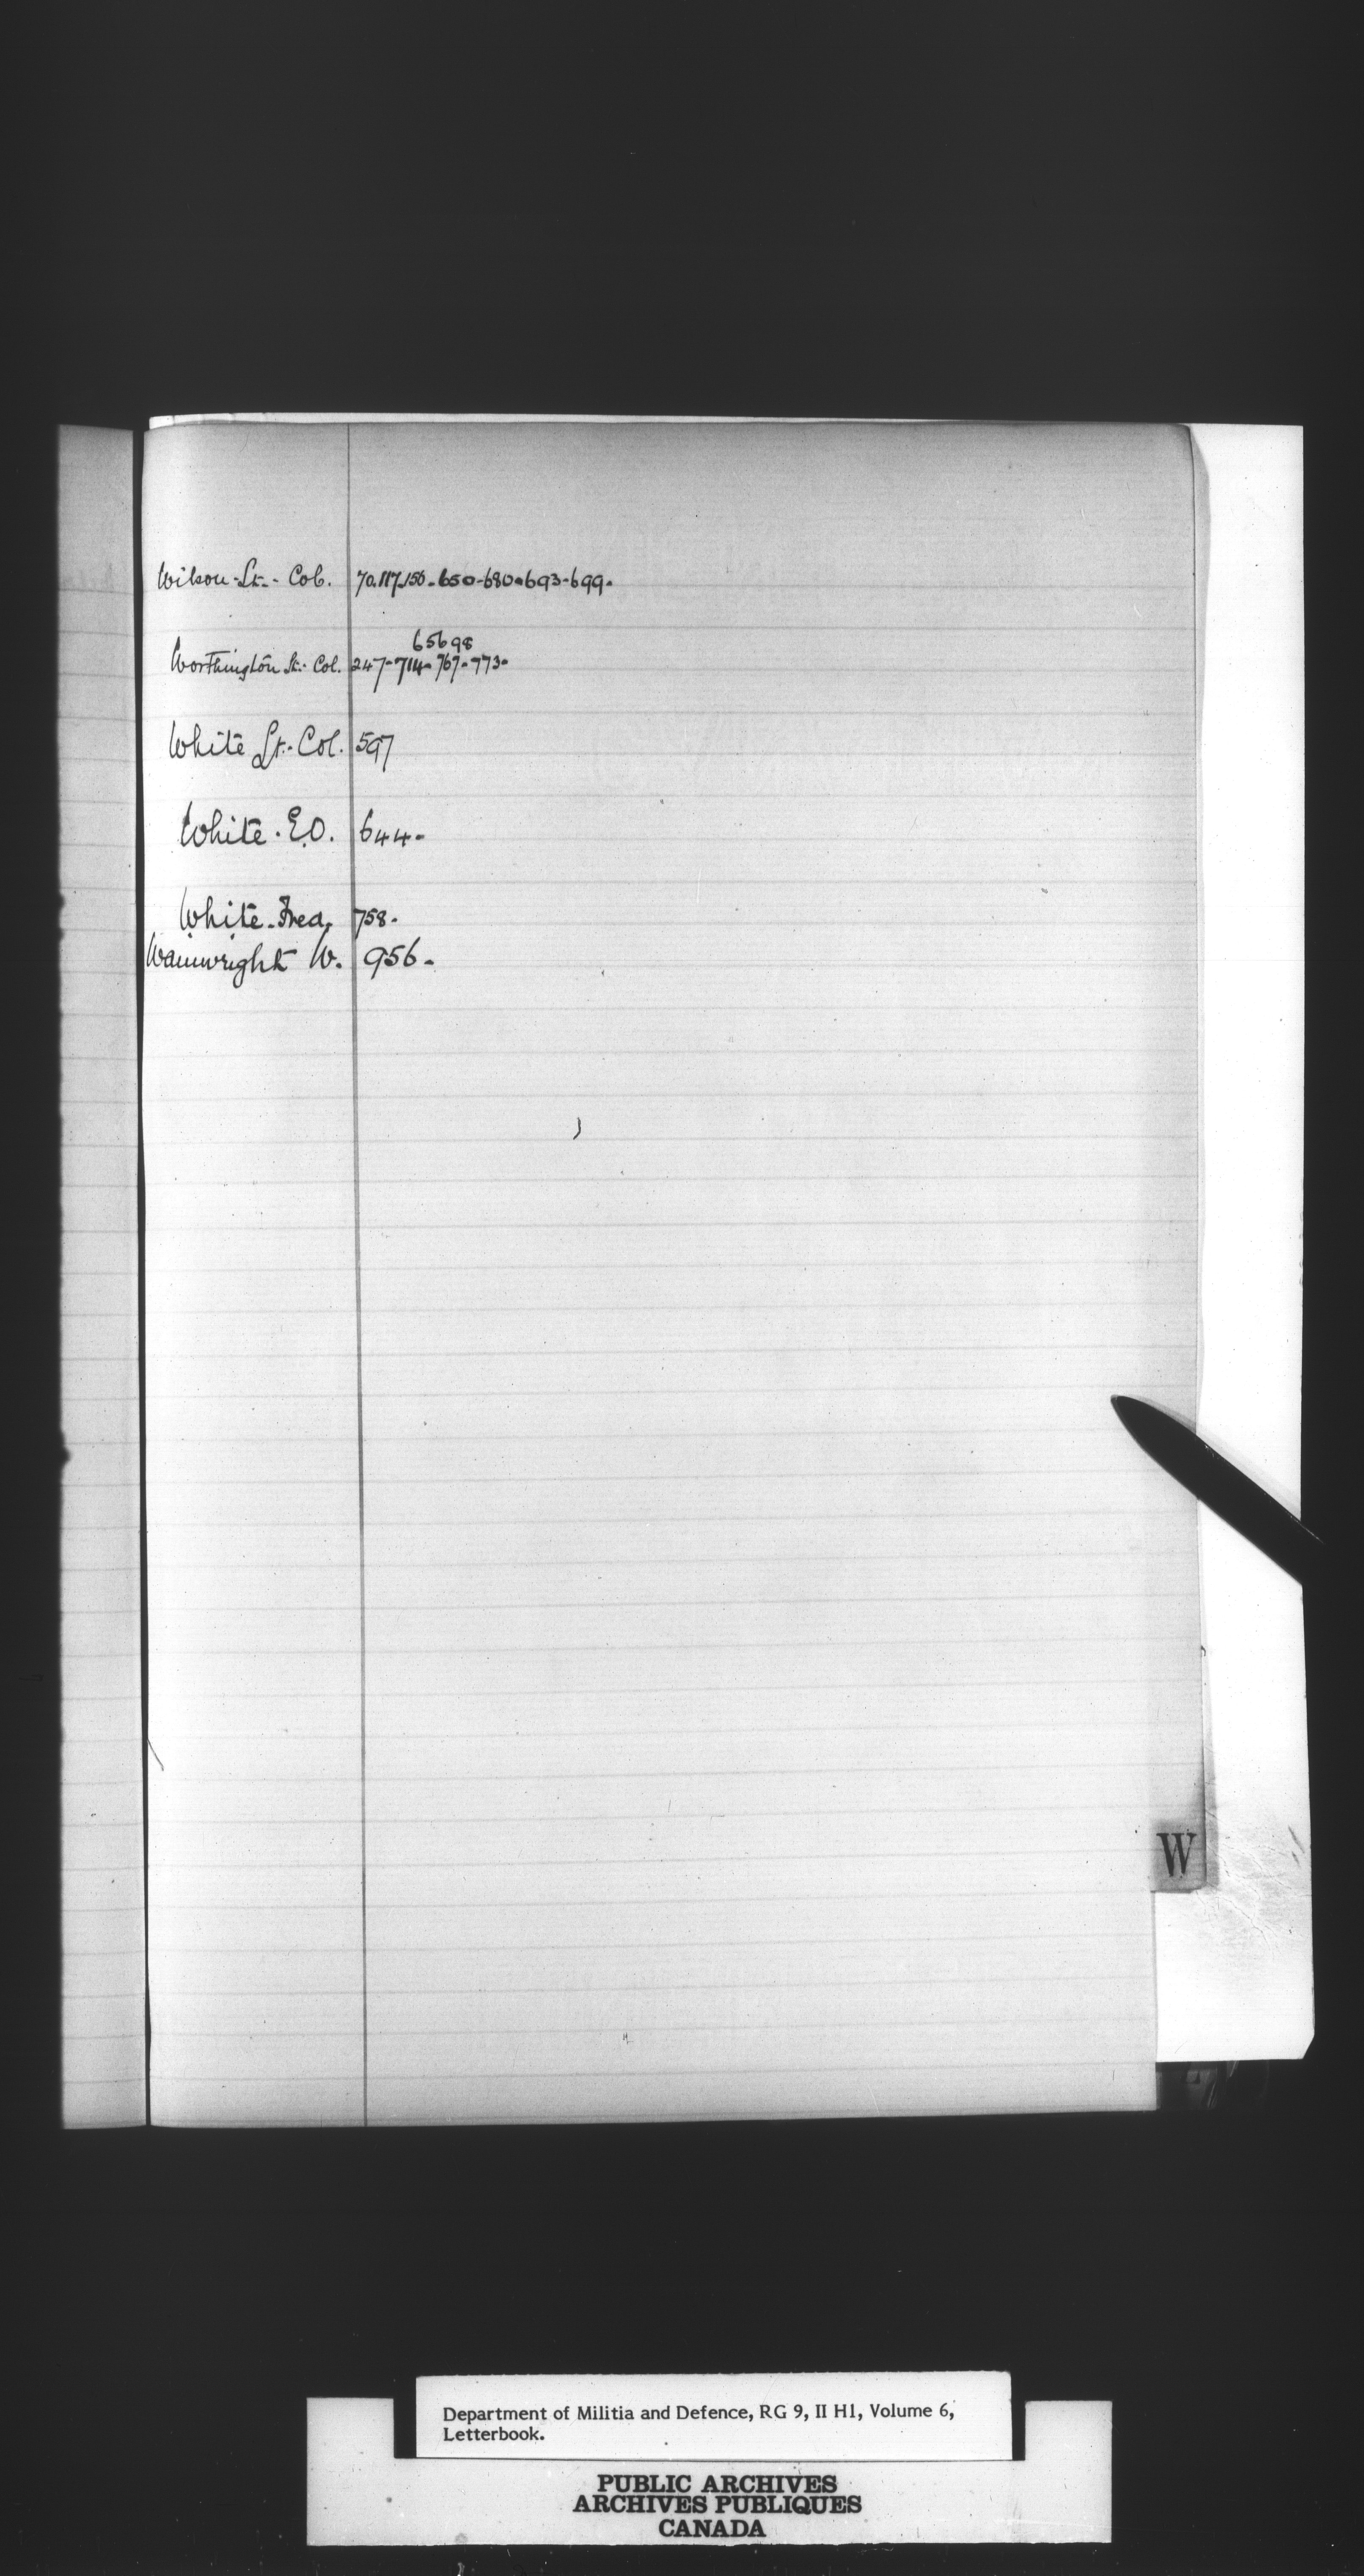 Wilson - Lt. - Col. 70.117.156 - 650 - 680 - 693 - 699 -
65698
Worthington Lt. - Col. 247 - 714 - 767 - 773 -
White Lt. - Col. 597
White . E.O. 644 -
White - Fred. 758 -
Wainwright W. 956 -
W
Department of Militia and Defence, RG 9, II H1, Volume 6,
Letterbook.
PUBLIC ARCHIVES
ARCHIVES PUBLIQUES
CANADA